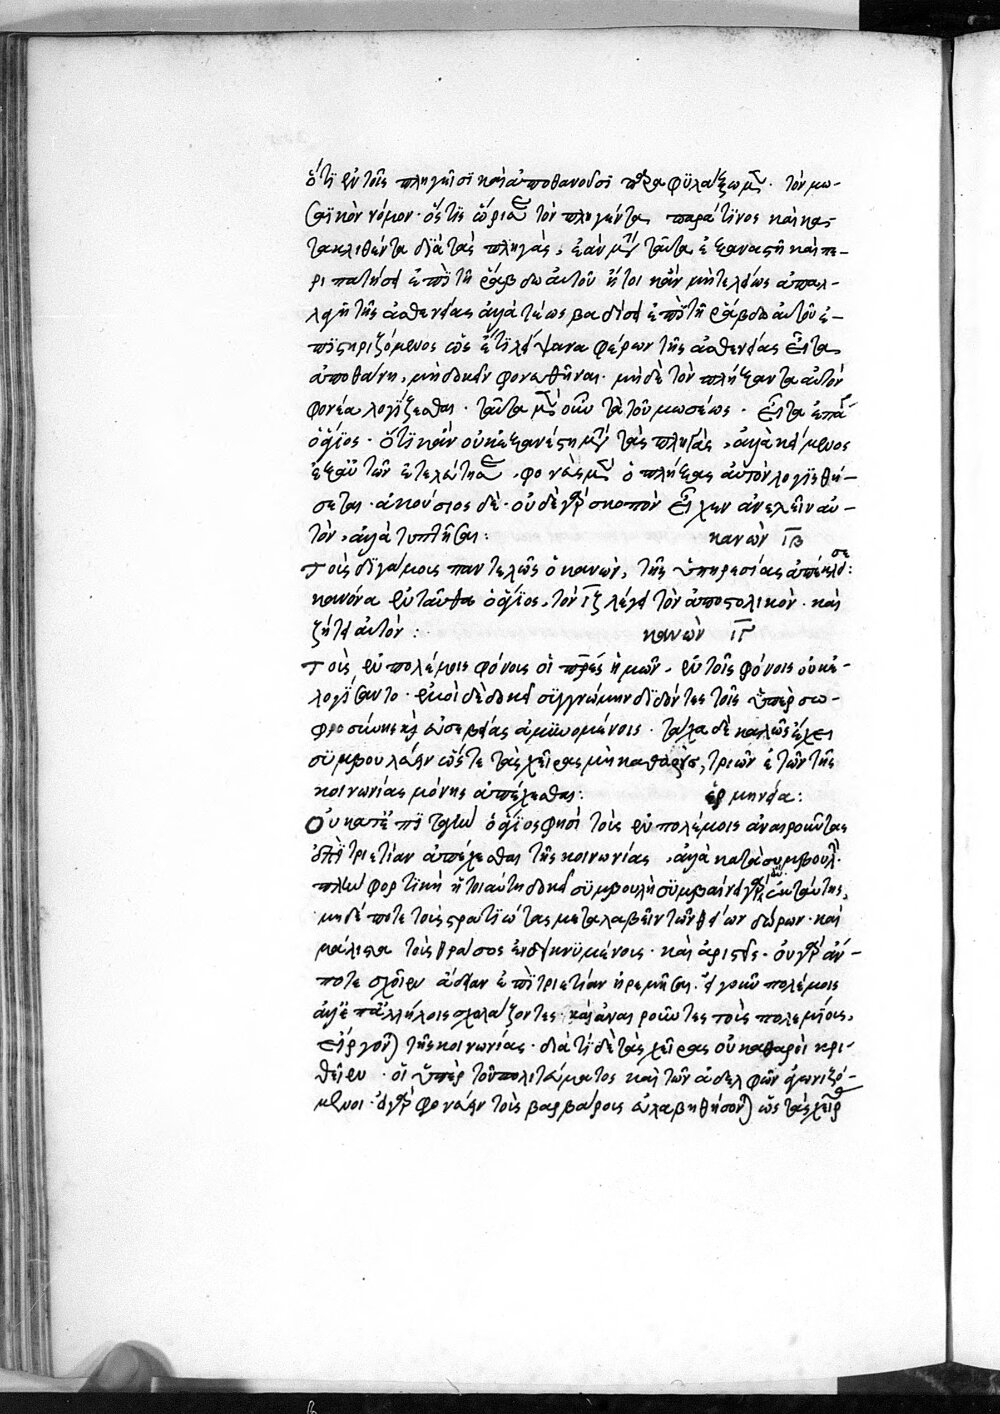 ὅτι ἐν τοῖς πληγεῖσι καὶ ἀποθανοῦσι παραφυλάξωμεν τὸν μω-
σαϊκὸν νόμον· ὅστις ὥρισε τὸν πληγέντα παρά τινος καὶ κα-
τακλιθέντα διὰ τὰς πληγὰς, ἐὰν μετὰ ταῦτα ἐξαναστῇ καὶ πε-
ριπατήσει ἐπὶ τῇ ῥάβδω αὐτοῦ ἤτοι κἂν μὴ τελείως ἀπαλ-
λαγῇ τῆς ἀσθενείας ἀλλὰ τέως βαδίσει ἐπὶ τῇ ῥάβδω αὐτοῦ ἐ-
πιστηριζόμενος ὡς ἔτι λείψανα φέρων τῆς ἀσθενείας εἶτα
ἀποθάνη, μὴ δοκεῖν φονευθῆναι· μηδὲ τὸν πλήξαντα αὐτὸν
φονέα λογίζεσθαι· ταῦτα μὲν οὖν τὰ τοῦ μωσέως· εἶτα ἐπάγει
ὁ ἅγιος· ὅτι κἂν οὐκ ἐξανέστη μετὰ τὰς πληγὰς, ἀλλὰ κείμενος
ἐξ αὐτῶν ἐτελεύτησε, φονεὺς μὲν ὁ πλήξας αὐτὸν λογισθή-
σεται· ἀκούσιος δὲ· οὐδὲ γὰρ σκοπὸν εἶχεν ἀνελεῖν αὐ-
τὸν, ἀλλὰ τυπτῆσαι: κανὼν ΙΒ
Τοὺς διγάμους παντελῶς ὁ κανὼν, τῆς ὑπηρεσίας ἀπέκλεισε:
κανόνα ἐνταῦθα ὁ ἅγιος, τὸν ΙΖ λέγει τὸν ἀποστολικὸν· καὶ
ζήτει αὐτὸν: κανὼν ΙΓ
Τοὺς ἐν πολέμοις φόνους οἱ πατέρες ἡμῶν, ἐν τοῖς φόνοις οὐκ ἐ-
λογίσαντο· ἐμοὶ δὲ δοκεῖ συγγνώμην διδόντες τοῖς ὑπὲρ σω-
φροσύνης καὶ εὐσεβείας ἀμυνομένοις· τάχα δὲ καλῶς ἔχει
συμβουλεύειν ὥστε τὰς χεῖρας μὴ καθαροὺς, τριῶν ἐτῶν τῆς
κοινωνίας μόνης ἀπέχεσθαι: ἑρμηνεία:
Οὐ κατ' ἐπιταγὴν ὁ ἅγιος φησὶ τοὺς ἐν πολέμοις ἀναιροῦντας
ἐπὶ τριετίαν ἀπέχεσθαι τῆς κοινωνίας, ἀλλὰ κατὰ συμβουλὴν·
πλὴν φορτικὴ ἡ τοιαύτη δοκεῖ συμβουλὴ συμβαίνει γὰρ ἐκ ταύτης,
μηδέποτε τοὺς στρατιώτας μεταλαβεῖν τῶν θείων δώρων· καὶ
μάλιστα τοὺς θράσος ἐνδεικνυμένους· καὶ ἀριστεῖς· οὐ γὰρ ἄν-
ποτε σχοῖεν ἄδειαν ἐπὶ τριετίαν ἠρεμῆσαι· εἰ γοῦν πολέμοις
ἀλλεπαλλήλοις σχολάζοντες καὶ ἀναιροῦντες τοὺς πολεμίους,
εἴργονται τῆς κοινωνίας· διὰ τί δὲ τὰς χεῖρας οὐ καθαροὶ κρι-
θεῖεν· οἱ ὑπὲρ τοῦ πολιτεύματος καὶ τῶν ἀδελφῶν ἀγωνιζό-
μενοι· εἰ γὰρ φονεύειν τοὺς βαρβάρους εὐλαβηθήσονται ὡς τὰς χεῖρας